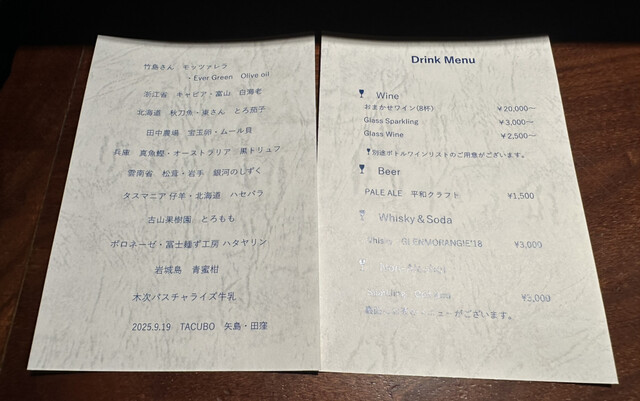 竹島さん モッツァレラ
・Ever Green Olive oil
浙江省 キャビア・富山 白海老
北海道 秋刀魚・東さん とろ茄子
田中農場 宝玉卵・ムール貝
兵庫 真魚鰹・オーストラリア 黒トリュフ
雲南省 松茸・岩手 銀河のしずく
タスマニア 仔羊・北海道 ハセパラ
古山果樹園 とろもも
ボロネーゼ・冨士麺ず工房 ハタヤリン
岩城島 青蜜柑
木次パスチャライズ牛乳
2025.9.19 TACUBO 矢島・田窪
Drink Menu
Wine
おまかせワイン(8杯) ¥20,000～
Glass Sparkling ¥3,000～
Glass Wine ¥2,500～
別途ボトルワインリストのご用意がございます。
Beer
PALE ALE 平和クラフト ¥1,500
Whisky＆Soda
Whisky GLENMORANGIE'18 ¥3,000
¥3,000
ニューがございます。